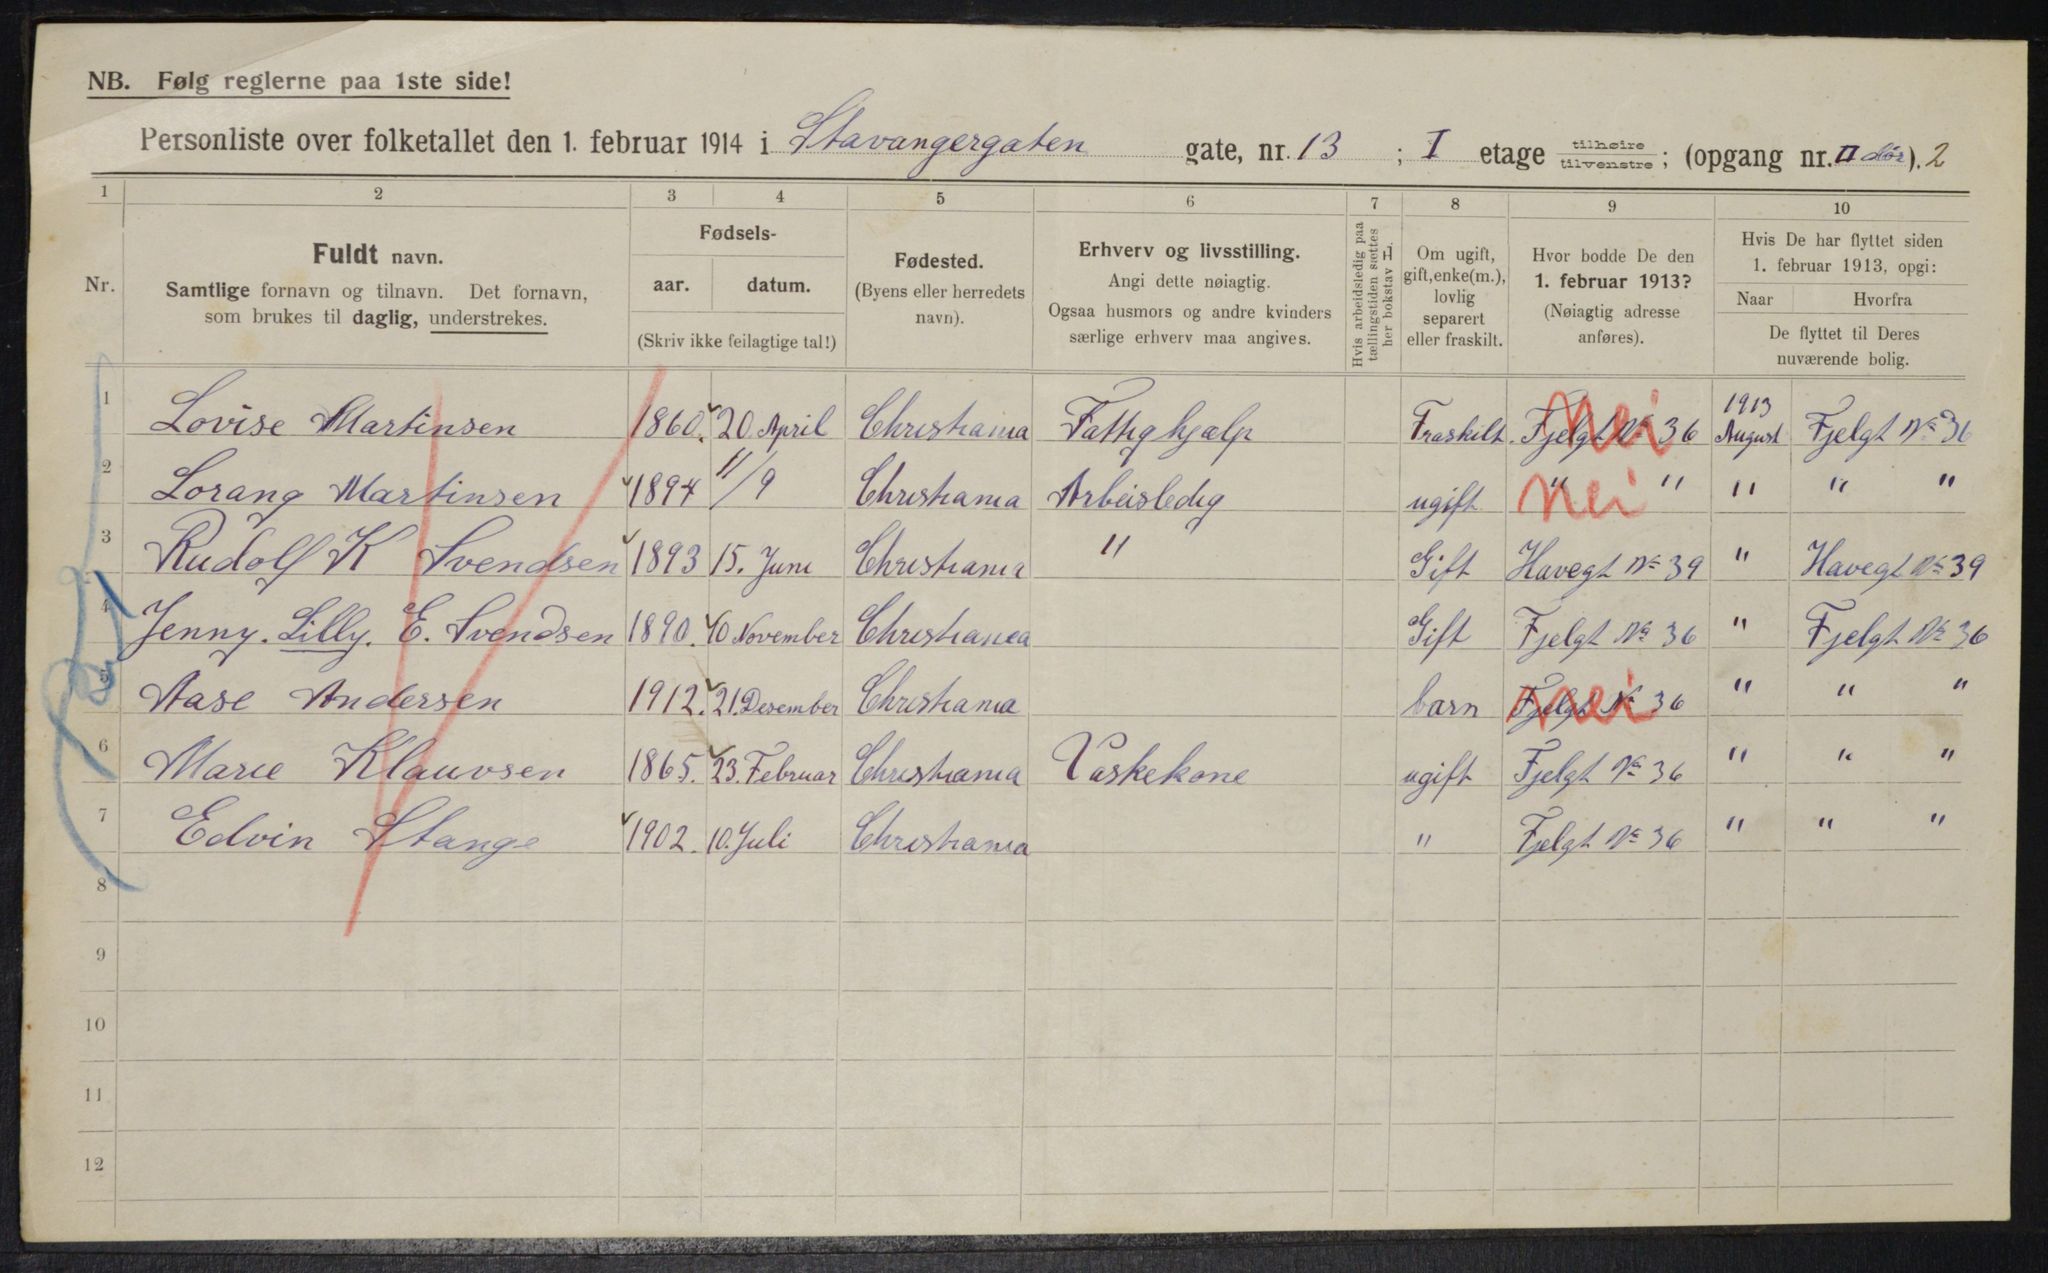 NB. Følg reglerne paa 1ste side!
Personliste over folketallet den 1. februar 1914 i Stavangergaten gate, nr. 13 ; I etage tilhøire tilvenstre ; (opgang nr. II dør). 2
1 2 3 4 5 6 7 8 9 10
Nr.
Fuldt navn.
Samtlige fornavn og tilnavn. Det fornavn,
som brukes til daglig, understrekes.
Fødsels-
aar. datum.
(Skriv ikke feilagtige tal!)
Fødested.
(Byens eller herredets
navn).
Erhverv og livsstilling.
Angi dette nøiagtig.
Ogsaa husmors og andre kvinders
særlige erhverv maa angives.
Hvis arbeidsledig paa
tællingstiden sættes
her bokstav H.
Om ugift,
gift, enke(m.),
lovlig
separert
eller fraskilt.
Hvor bodde De den
1. februar 1913?
(Nøiagtig adresse
anføres).
Hvis De har flyttet siden
1. februar 1913, opgi:
Naar Hvorfra
De flyttet til Deres
nuværende bolig.
1 Lovise Martinsen 1860. 20 April Christiania Fattighjælp Fraskilt Fjelgt No 36 nei 1913 August Fjelgt No 36
2 Lorang Martinsen 1894 11/9 Christiania Arbeisledig ugift " " nei " " "
3 Rudolf K Svendsen 1893 15. Juni Christiania " Gift Havegt No 39 " Havegt No 39
4 Jenny. Lilly. E. Svendsen 1890. 10 November Christiania Gift Fjelgt No 36 " Fjelgt No 36
5 Aase Andersen 1912. 21. Desember Christiania barn Fjelgt No 36 nei " " "
6 Marie Klauvsen 1865. 23. Februar Christiania Vaskekone ugift Fjelgt No 36 " " "
7 Edvin Stange 1902. 10. Juli Christiania " Fjelgt No 36 " " "
8
9
10
11
12